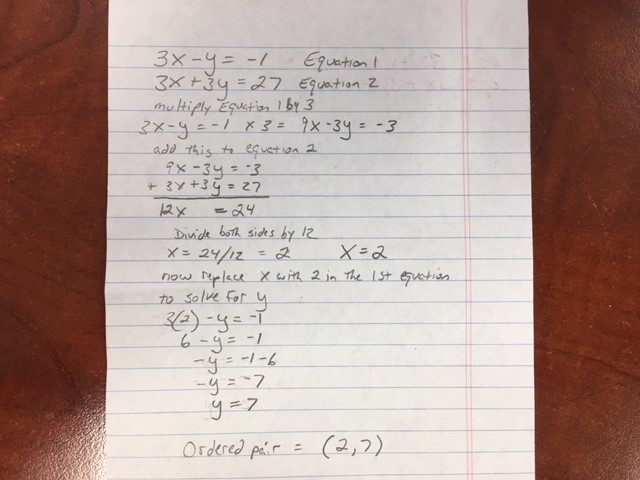 3x-y= -1 Equation 1
3x+3y=27 Equation 2
multiply Equation 1 by 3
3x-y=-1 x3= 9x-3y= -3
add this to equation 2
9x-3y=-3
+ 3x+3y=27
12x =24
Divide both sides by 12
x= 24/12 = 2 X=2
now replace X with 2 in the 1st equation
to solve for y
3(2) -y= -1
6-y= -1
-y= -1-6
-y= -7
y=7
Ordered pair = (2,7)